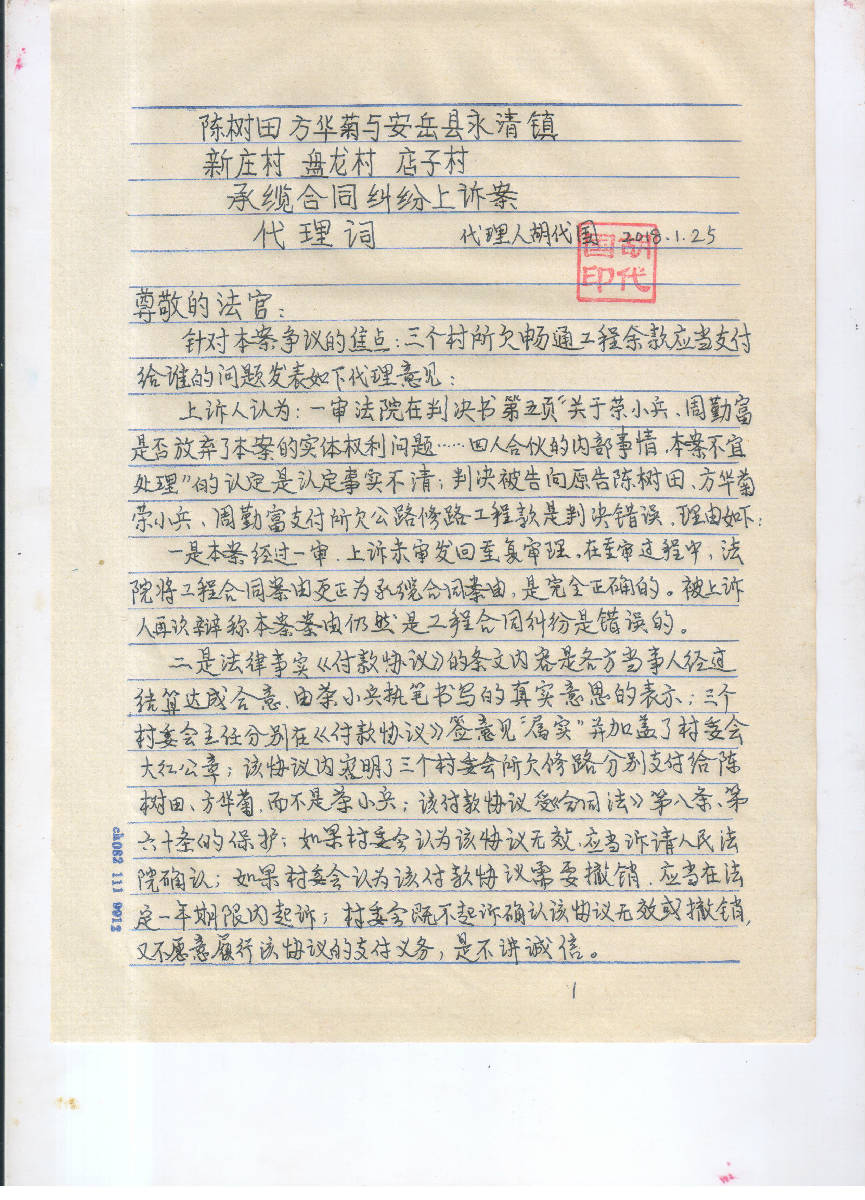 陈树田 方华菊与安岳县永清镇
新庄村 盘龙村 店子村
承缆合同纠纷上诉案
代理词 代理人胡代国 2018.1.25
国胡
印代
尊敬的法官：
针对本案争议的焦点：三个村所欠畅通工程余款应当支付
给谁的问题发表如下代理意见：
上诉人认为：一审法院在判决书第五页“关于荣小兵、周勤富
是否放弃了本案的实体权利问题……四人合伙的内部事情，本案不宜
处理”的认定是认定事实不清；判决被告向原告陈树田、方华菊
荣小兵、周勤富支付所欠公路修路工程款是判决错误，理由如下：
一是本案经过一审、上诉未审发回重复审理。在重审过程中，法
院将工程合同案由更正为承缆合同案由，是完全正确的。被上诉
人再次辩称本案案由仍然是工程合同纠纷是错误的。
二是法律事实《付款协议》的条文内容是各方当事人经过
结算达成合意，由荣小兵执笔书写的真实意思的表示；三个
村委会主任分别在《付款协议》签意见“属实”并加盖了村委会
大红公章；该协议内容明了三个村委会所欠修路分别支付给陈
树田、方华菊，而不是荣小兵；该付款协议受《合同法》第八条、第
六十条的保护；如果村委会认为该协议无效，应当诉请人民法
院确认；如果村委会认为该付款协议需要撤销，应当在法
定一年期限内起诉；村委会既不起诉确认该协议无效或撤销，
又不愿意履行该协议的支付义务，是不讲诚信。
1
ch082 111 9912